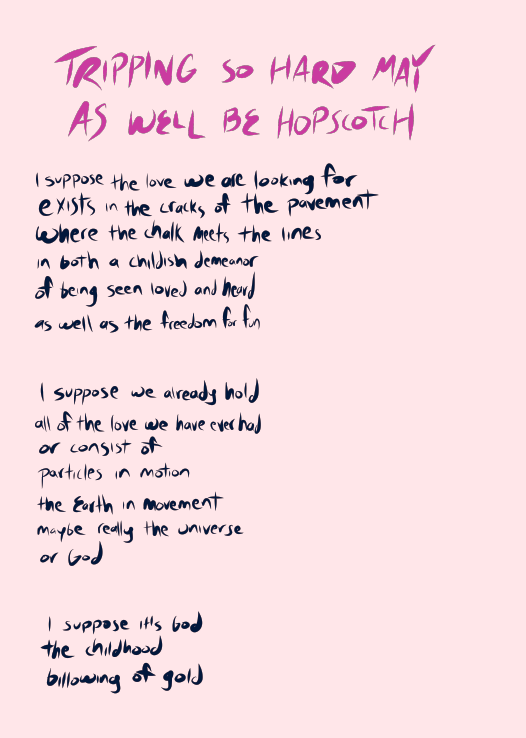 TRIPPING SO HARD MAY
AS WELL BE HOPSCOTCH
I suppose the love we are looking for
exists in the cracks of the pavement
where the chalk meets the lines
in both a childish demeanor
of being seen loved and heard
as well as the freedom for fun
I suppose we already hold
all of the love we have ever had
or consist of
particles in motion
the Earth in movement
maybe really the universe
or God
I suppose it's God
the childhood
billowing of gold